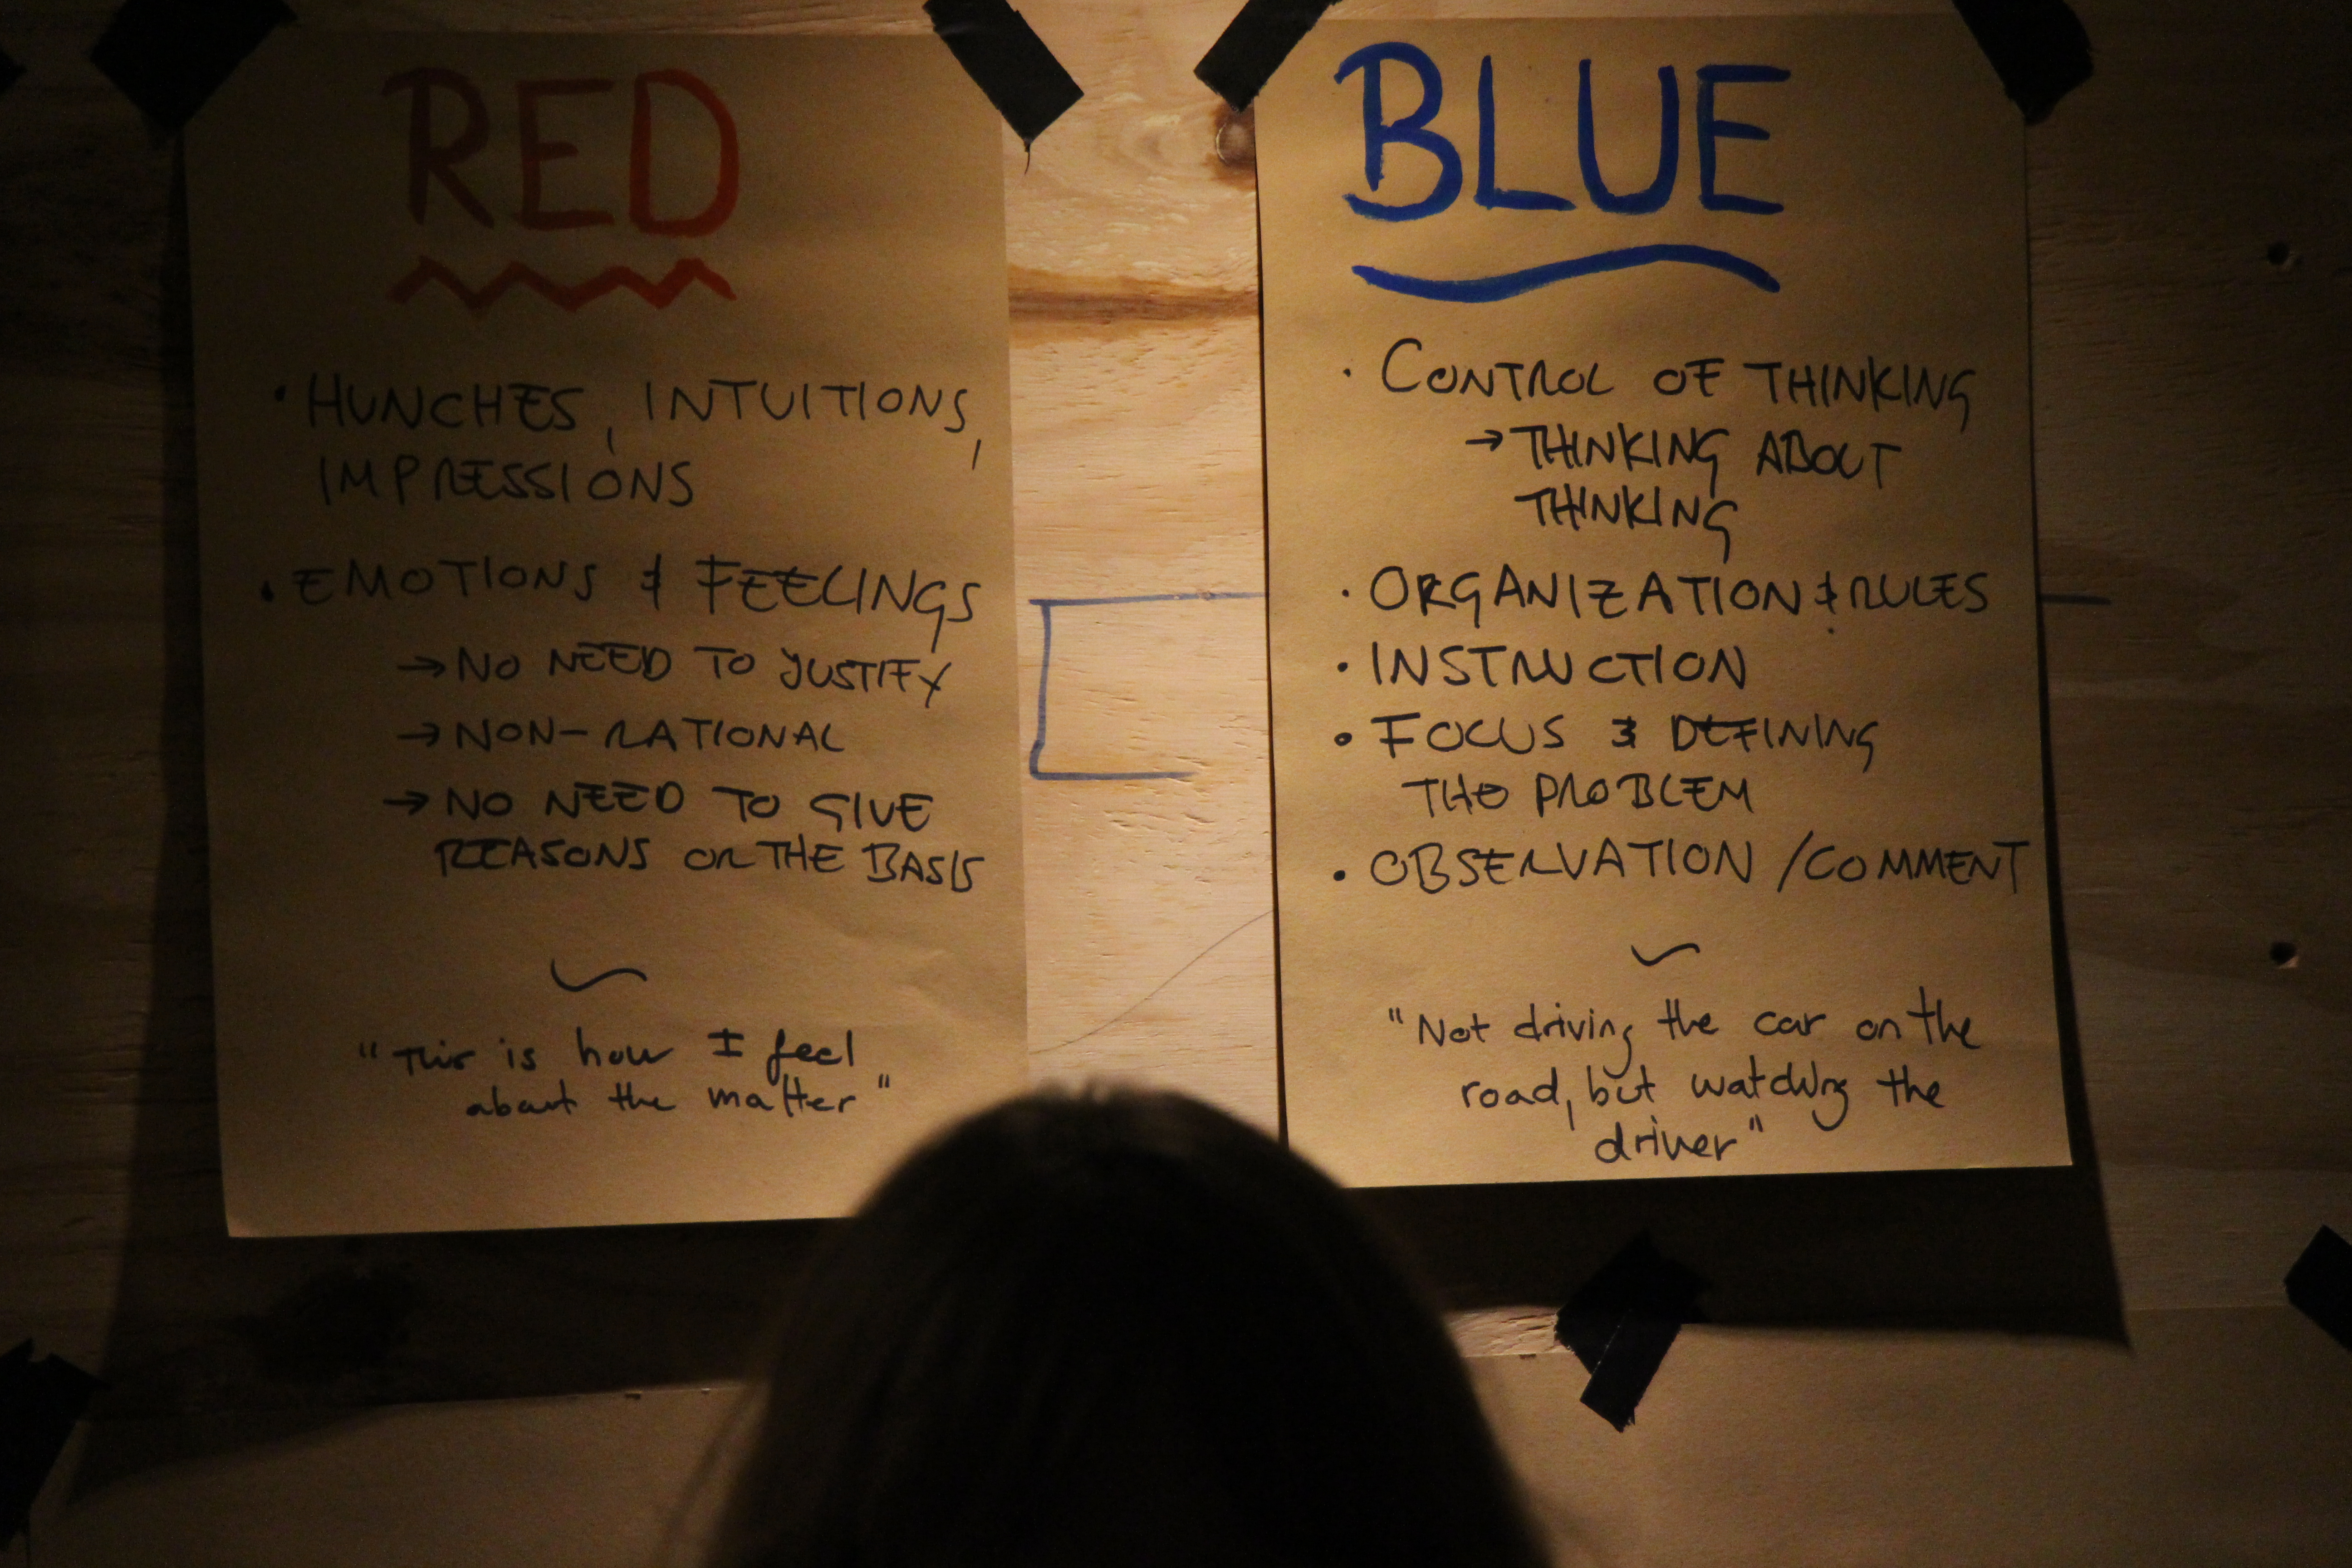 RED
• HUNCHES, INTUITIONS,
IMPRESSIONS
• EMOTIONS & FEELINGS
→ NO NEED TO JUSTIFY
→ NON-RATIONAL
→ NO NEED TO GIVE
REASONS OR THE BASIS
"This is how I feel
about the matter"
BLUE
• CONTROL OF THINKING
→ THINKING ABOUT
THINKING
• ORGANIZATION & RULES
• INSTRUCTION
• FOCUS & DEFINING
THE PROBLEM
• OBSERVATION / COMMENT
"Not driving the car on the
road, but watching the
driver"